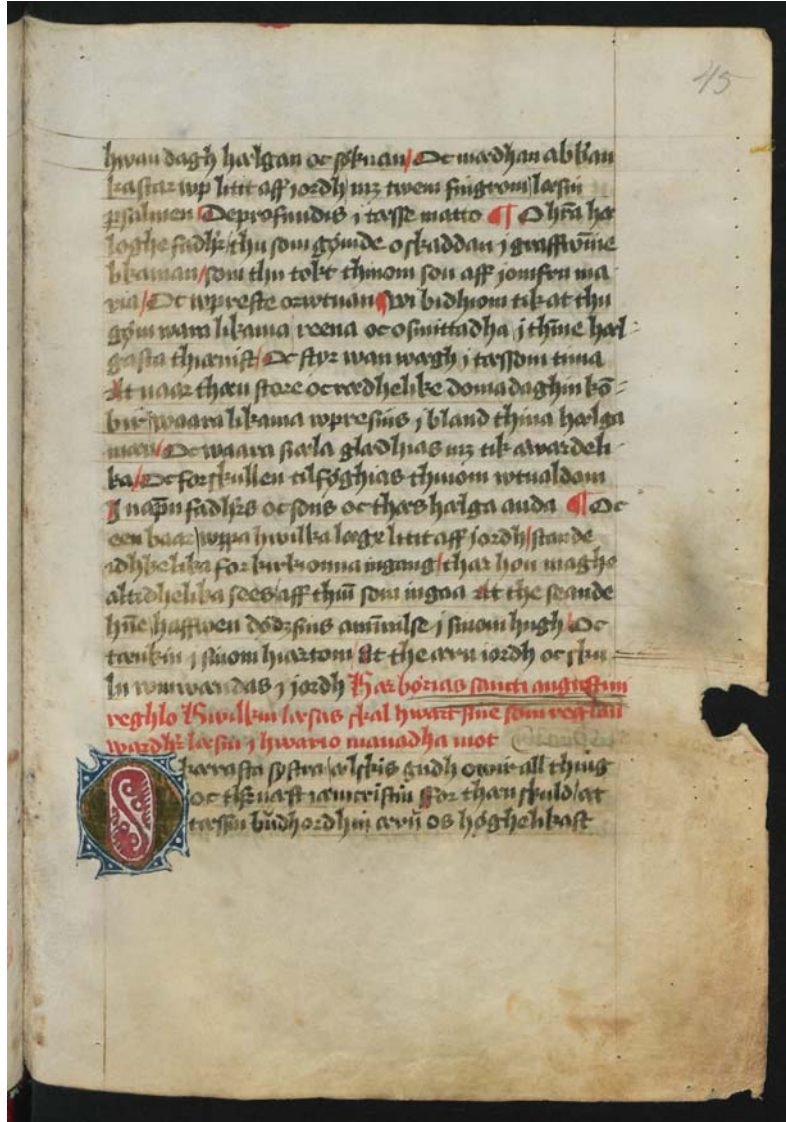 45
hwan dagh hælgan oc søknan / Oc mædhan abban
kastar wp litit aff iordh mz twem fingrom læsin
psalmen / De profundis j tæsse matto ¶ O hr̄a hæ
loghe fadhr̄ / thu som gømde oskaddan j graffwēne
likaman / som thu tokt thinom son aff jomfru ma
ria / Oc wpreste orwtnan ¶ Wi bidhiom tik at thu
gøm wara likama reena oc osmittadha j thīne hæl-
gasta thiænist / Oc styr wan wægh j tæssom tima
At naar thæn store oc rædhelike domadaghin kō-
bir / waara likama wpresins j bland thina hælga
mæn / Oc waara siæla glædhias mz tik æwærdeli
ka / Oc forskullen tilføghias thinom wtualdom
J napn fadhr̄s oc sons oc thæs hælga anda ¶ Oc
een baar / wppa hwilka læge litit aff jordh / stande
idhkelika for kirkionna ingang / thar hon maghe
altidhelika sees / aff thm̄ som ingaa At the seande
hn̄e / haffwen dødzsins aminnilse j sinom hugh / Oc
tænkin j sinom hiærtom / At the æru iordh oc sku
lu wmwændas j jordh Hær børias sancti augustini
reghlo Hwilkin læsas skal hwart sinne som reglan
wardhr̄ læsin j hwario manadha mot
O kærasta systra / ælskis gudh owir all thing
oc thr̄ næst iæmcristin ffor thæn skuld / at
tæssin budhordhin ærū os høghelikast